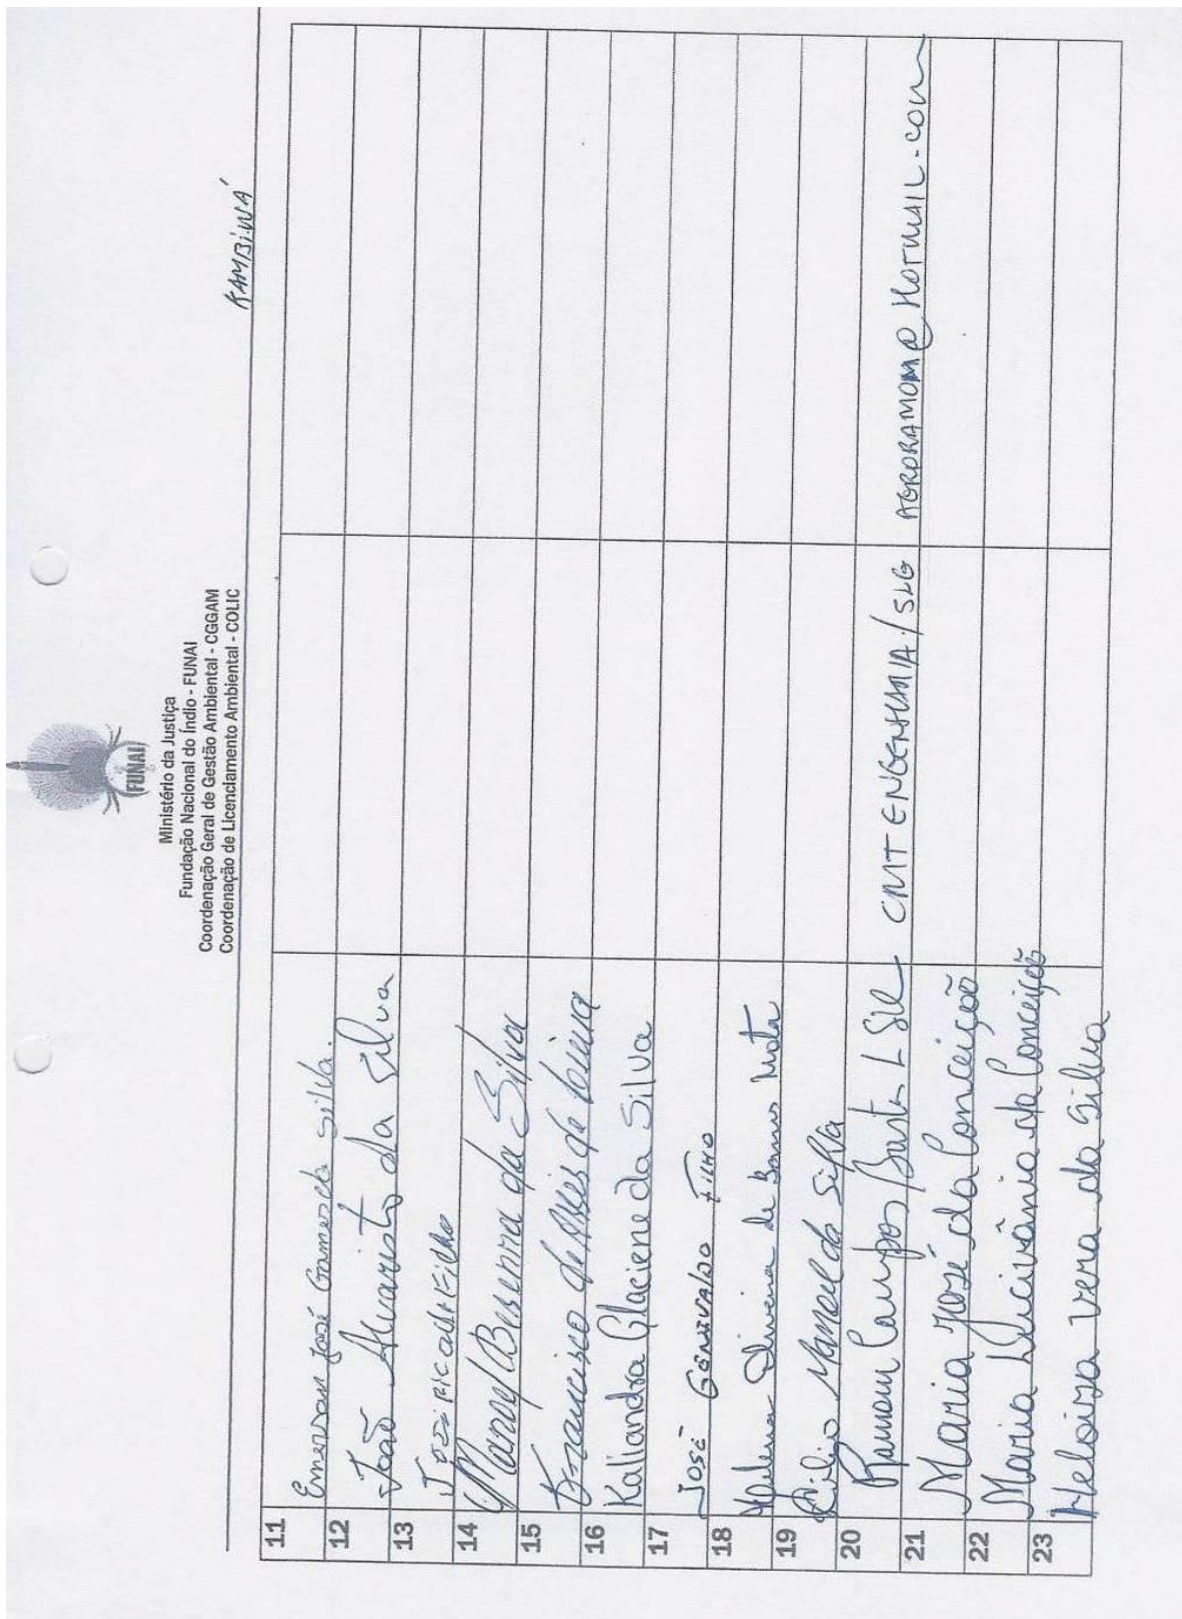 FUNAI
Ministério da Justiça
Fundação Nacional do Índio - FUNAI
Coordenação Geral de Gestão Ambiental - CGGAM
Coordenação de Licenciamento Ambiental - COLIC
KAMBIWÁ
11 Emerson José Gomes da Silva.
12 João Alvaristo da Silva
13 José Ricardo Filho
14 Manoel Beserra da Silva
15 Francisco de Assis de
16 Kaliandra Glaciene da Silva
17 José Genivaldo Filho
18 Oliveira de Barros Mota
19 Manoel da Silva
20 Ramom Campos L CMT ENGENHARIA / SLG AGRORAMOM@HOTMAIL.COM
21 Maria José da Conceição
22 Maria Lucivânia da Conceição
23 Heloiza Vera da Silva